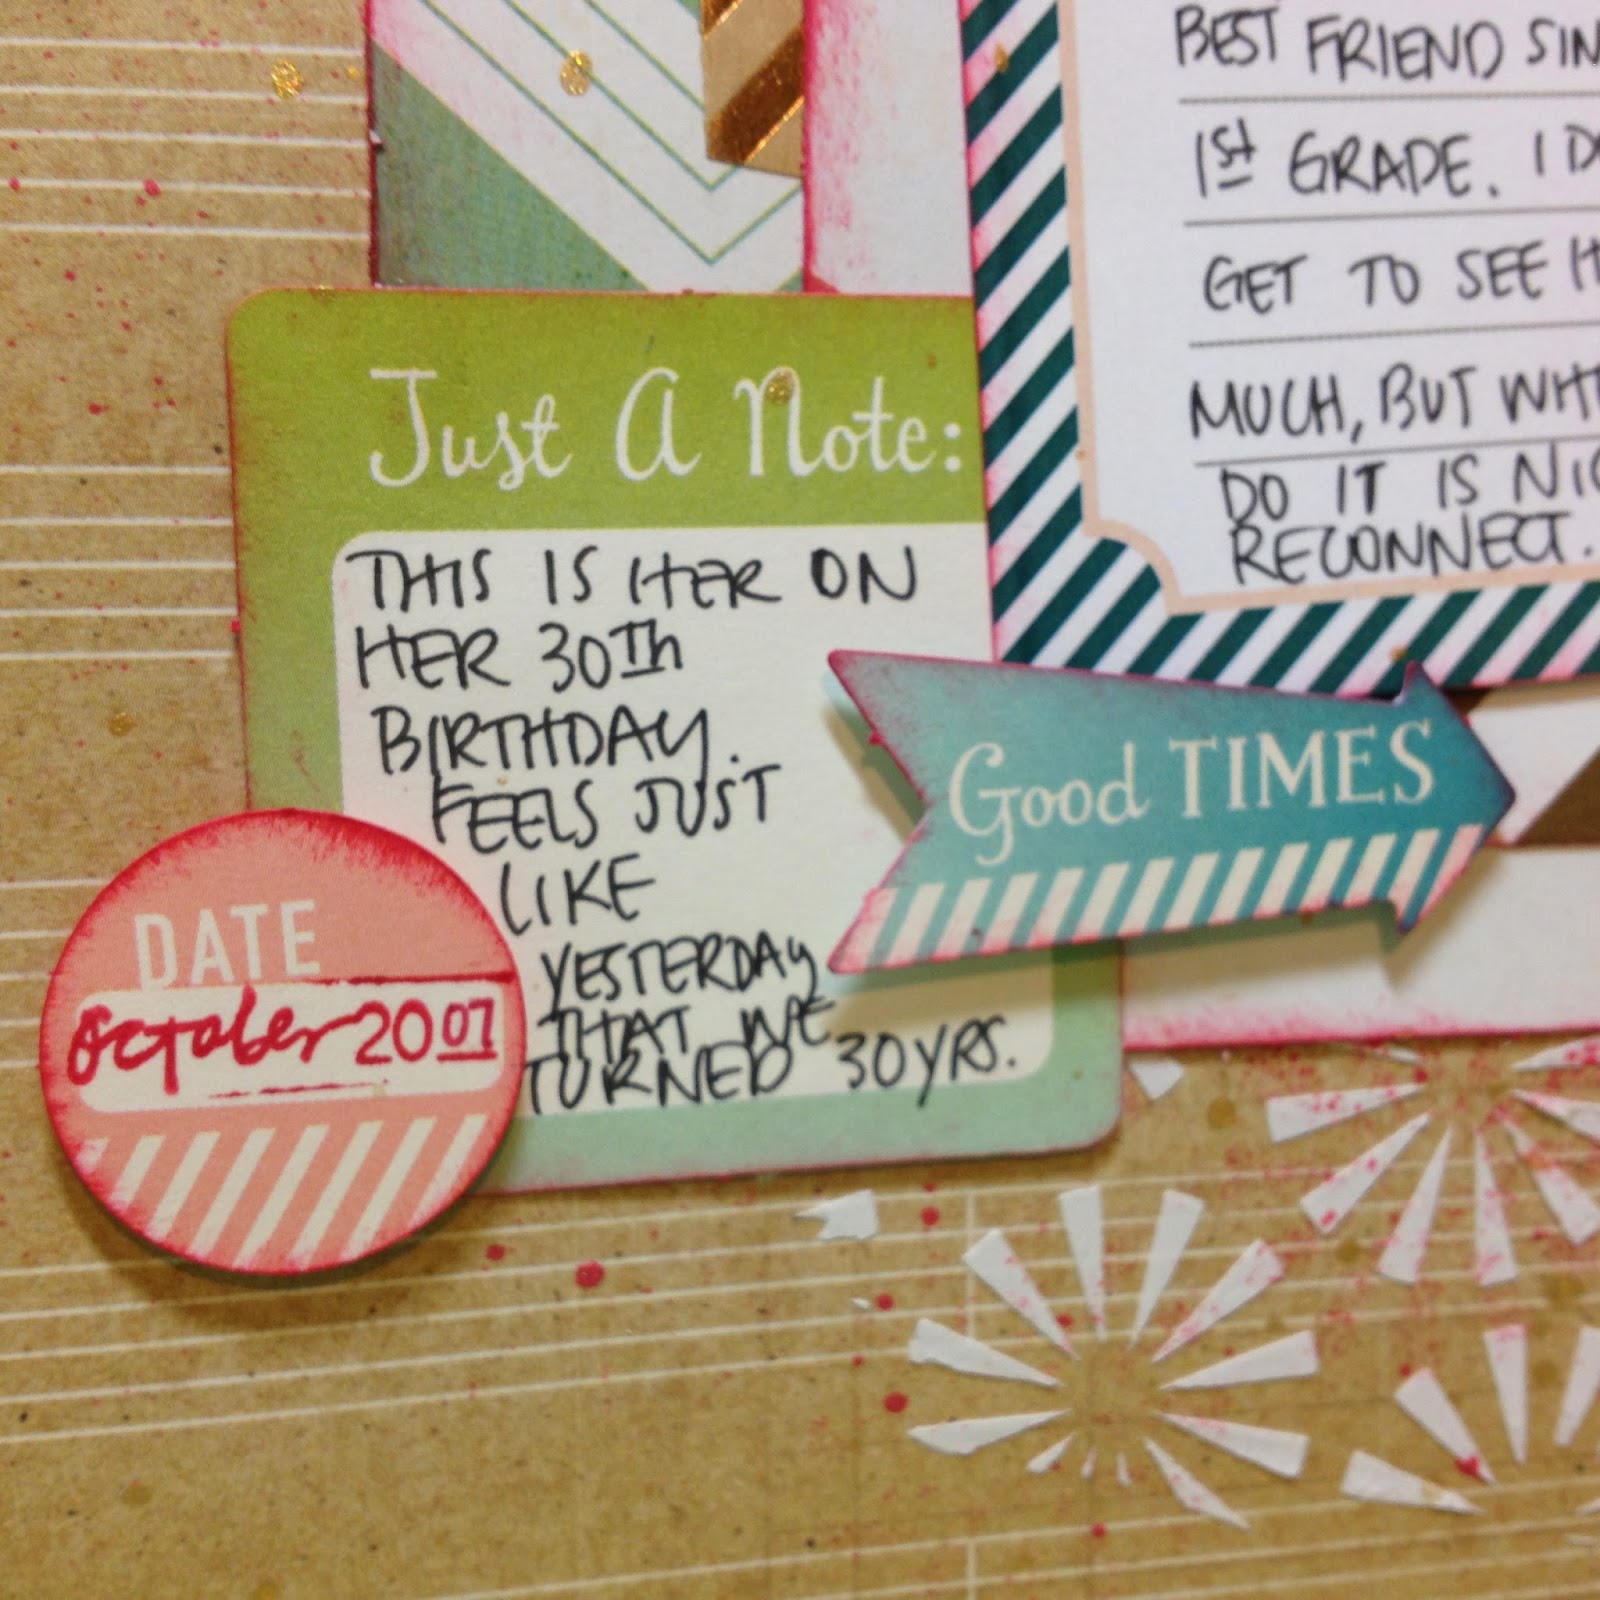 BEST FRIEND SIN
1st GRADE. I DO
GET TO SEE H
MUCH, BUT WHE
DO IT IS NIC
RECONNECT.
Just A Note:
THIS IS HER ON
HER 30Th
BIRTHDAY.
FEELS JUST
LIKE
YESTERDAY
THAT WE
TURNED 30YRS.
Good TIMES
DATE
October 2007